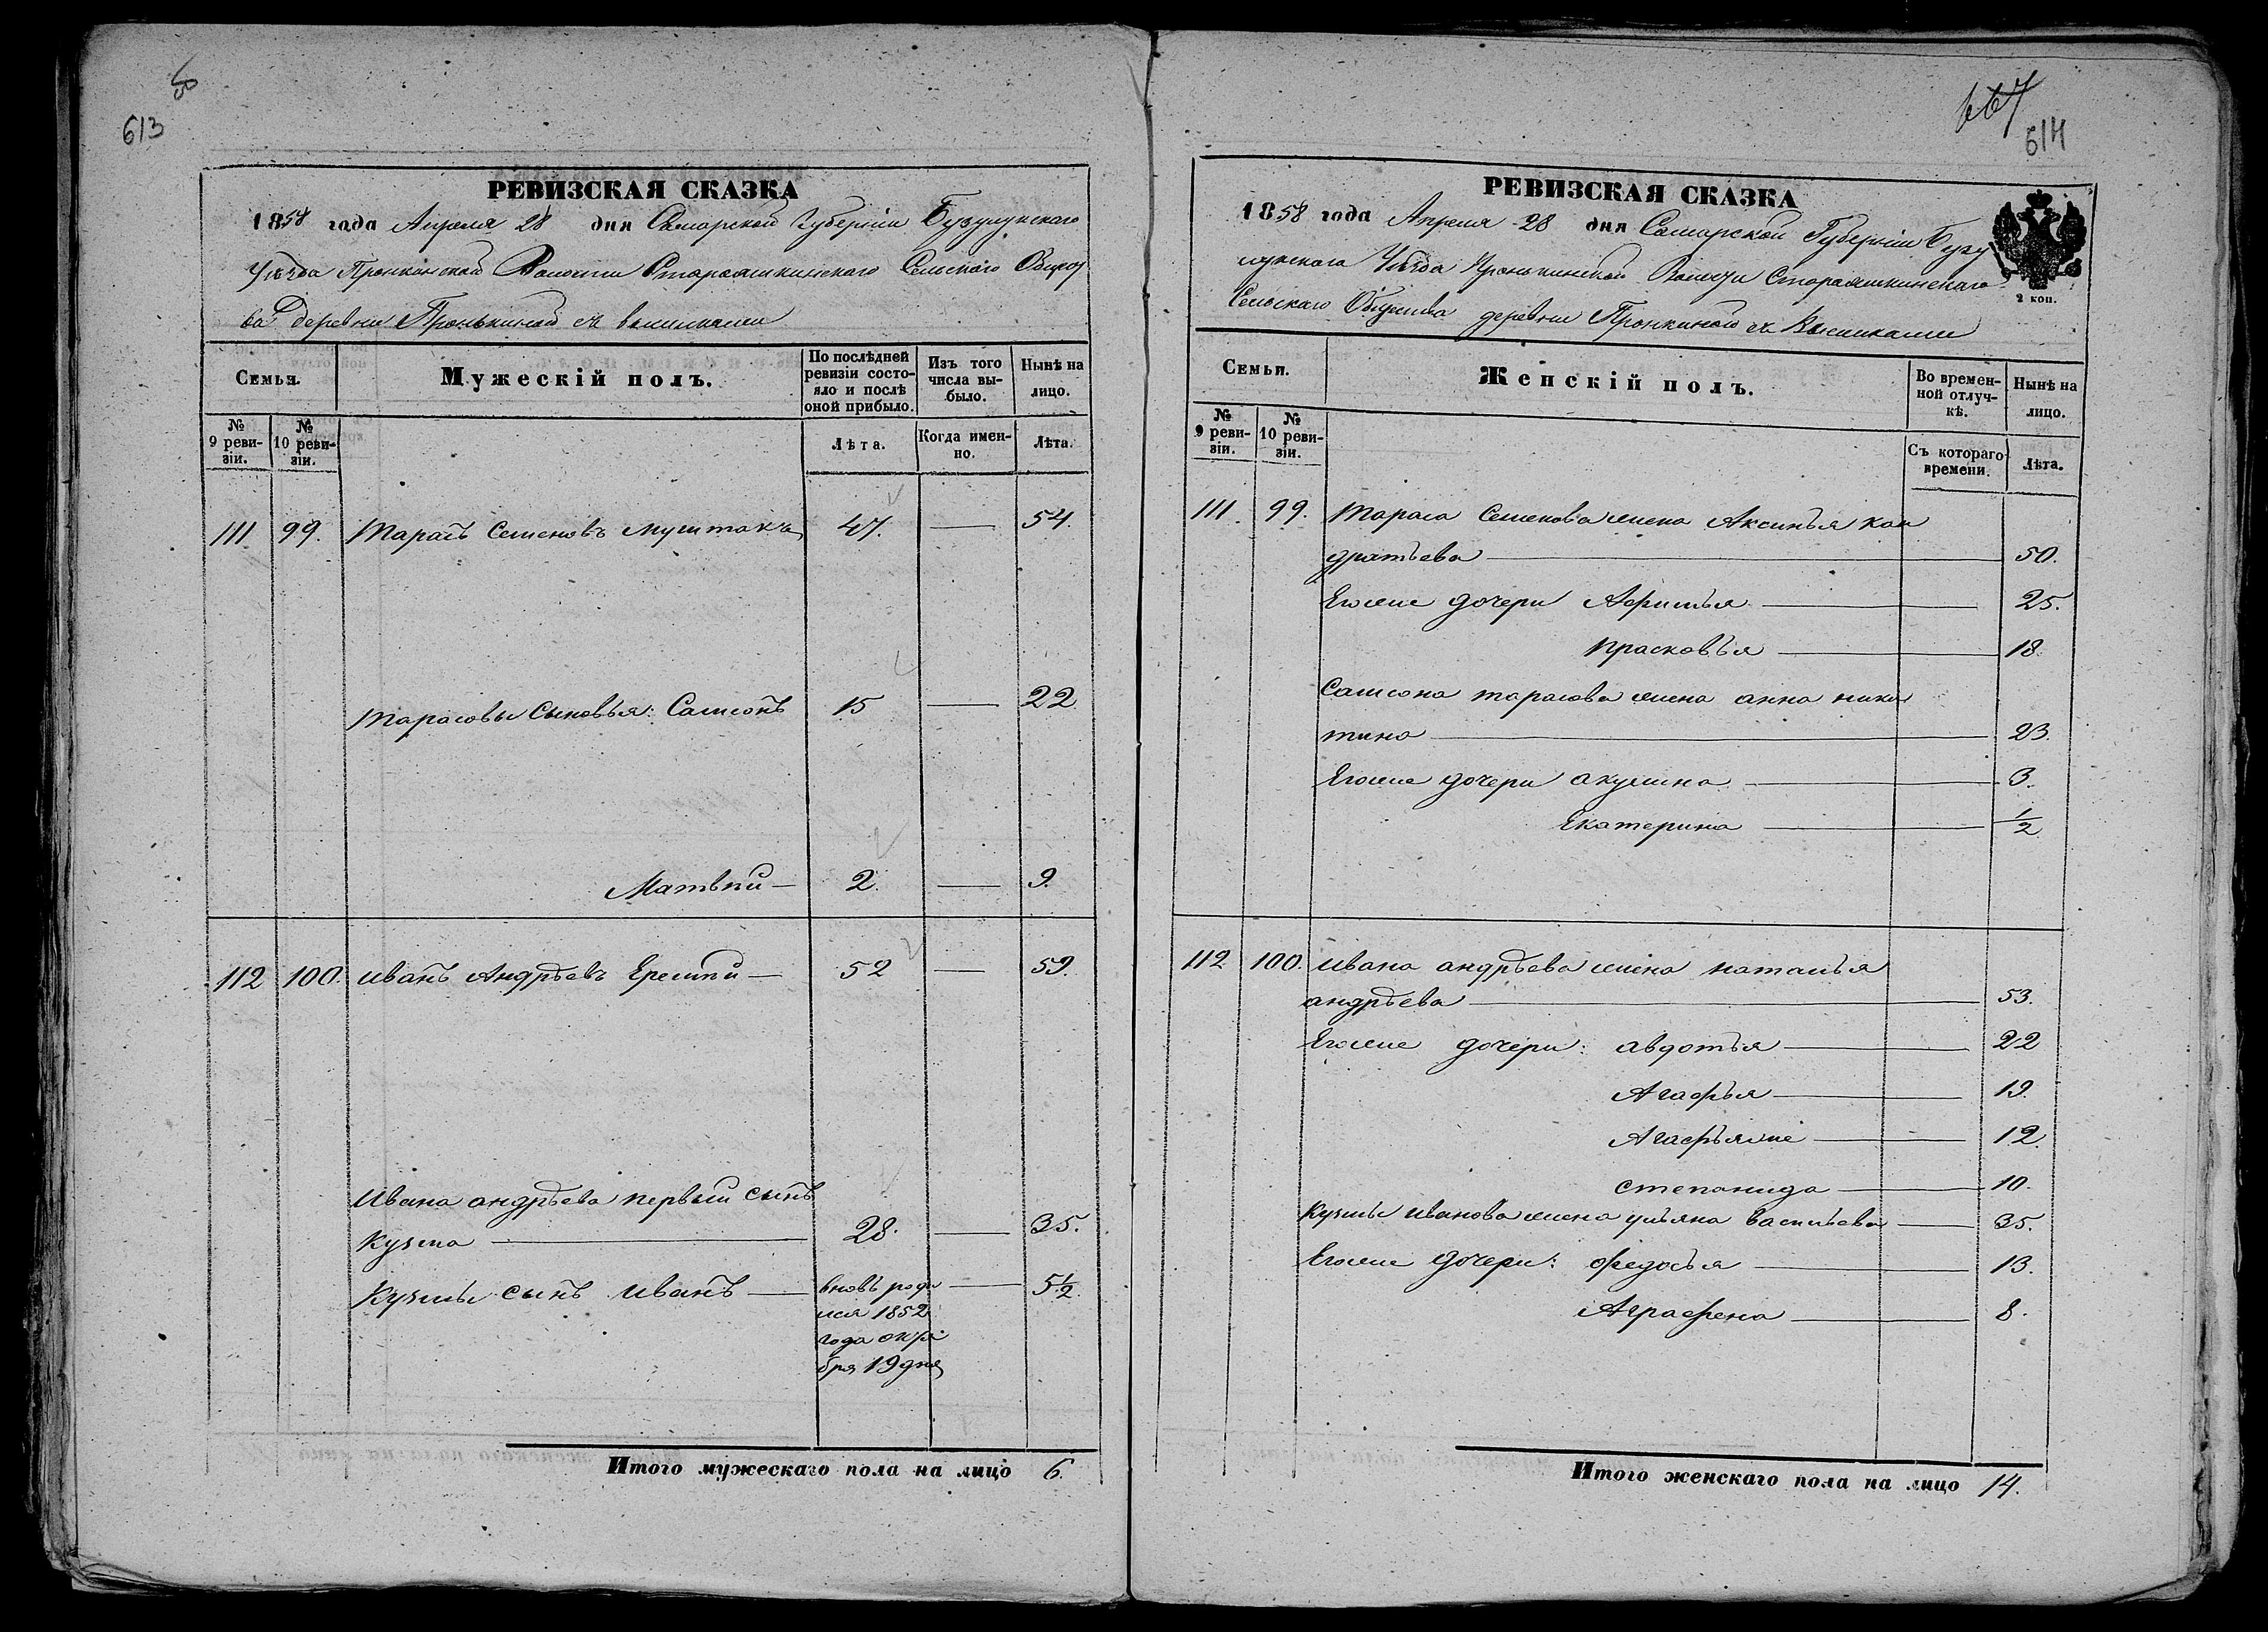 613
РЕВИЗСКАЯ СКАЗКА
1858 года Апреля 28 дня Самарской Губерніи Бузулукскаго
Уѣзда Пронкинской Волости Староашкинскаго Сельскаго Общест
ва деревни Пронькиной съ выселками
Семьи.
Мужескій полъ.
По послѣдней ревизіи состояло и послѣ оной прибыло.
Изъ того числа выбыло.
Нынѣ на лицо.
№ 9 ревизіи.
№ 10 ревизіи.
Лѣта.
Когда именно.
Лѣта.
111 99. Тарасъ Семеновъ Муштакъ 47. — 54.
Тарасовы Сыновья: Самсонъ 15 — 22.
Матвѣй — 2. — 9.
112 100. Иванъ Андрѣевъ — 52 — 59.
Ивана андрѣева первый сынъ
Кузма — 28. — 35.
Кузмы сынъ Иванъ — вновь роди — 5½.
лся 1852
года октя
бря 19 дня
Итого мужескаго пола на лицо 6.
667
614
РЕВИЗСКАЯ СКАЗКА
1858 года Апреля 28 дня Самарской Губерніи Бузу
лукскаго Уѣзда Пронькинской Волости Староашкинскаго
Сельскаго Общества деревни Пронкиной съ Выселками
2 коп.
Семьи.
Женскій полъ.
Во временной отлучкѣ.
Нынѣ на лицо.
№ 9 ревизіи.
№ 10 ревизіи.
Съ котораго времени.
Лѣта.
111. 99. Тараса Семенова жена Аксинья кон
дратьева — 50.
Егоже дочери Афимья — 25.
Прасковья — 18.
Самсона тарасова жена анна ники
тина — 23.
Егоже дочери акулина — 3.
Екатерина — ½
112 100. Ивана андрѣева жена наталья
андрѣева — 53.
Егоже дочери: авдотья — 22
Агафья — 19.
Агафья же — 12.
степанида — 10.
Кузмы иванова жена ульяна васильева — 35.
Егоже дочери: федосья — 13.
Аграфена — 8.
Итого женскаго пола на лицо 14.